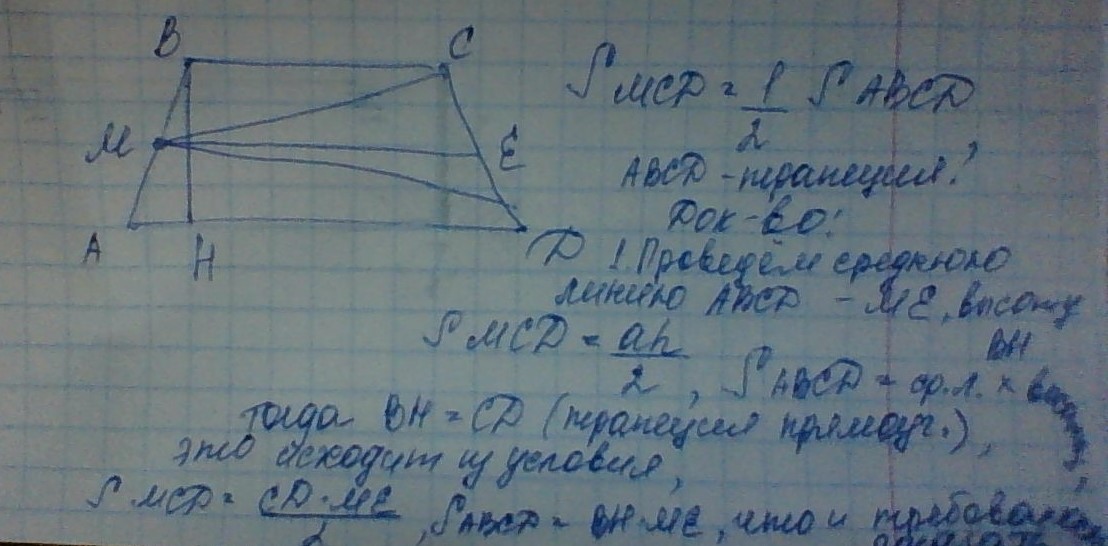 B C
M E
A H D
S MCD = 1/2 S ABCD,
ABCD - трапеция?
Док-во:
1. Проведём среднюю
линию ABCD - ME, высоту
BH
S MCD = ah/2, S ABCD = ср.л. ×
тогда BH = CD (трапеция прямоуг.),
это исходит из условия,
S MCD = CD·ME/2, S ABCD = BH·ME, что и требовалось